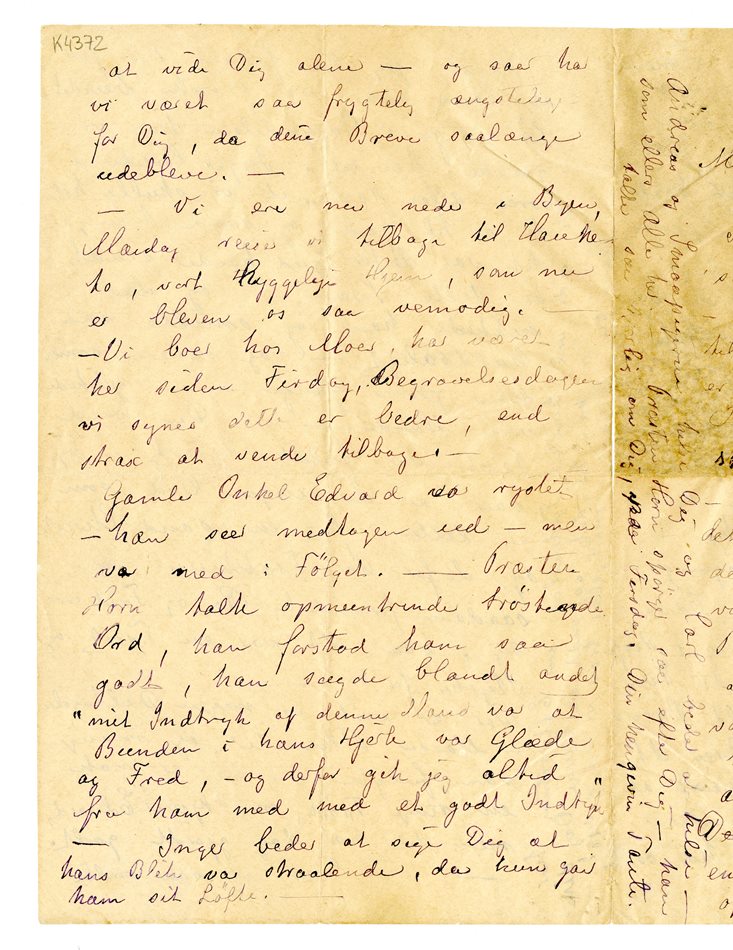 K4372
at vide Dig alene — og saa har
vi været saa frygtelig ængstelig
for Dig, da dine Breve saalænge
udebleve. —
— Vi ere nu nede i Byen,
Mandag reise vi tilbage til Hauke-
to, vort hyggelige Hjem, som nu
er bleven os saa vemodig. —
— Vi boer hos Moer, har været
her siden Firdag, Begravelsesdagen
vi synes dette er bedre, end
strax at vende tilbage. —
Gamle Onkel Edvard var rystet
— han seer medtagen ud — men
var med i Følget. — Præsten
Horn talte opmuntrende trøstende
Ord, han forstod ham saa
godt, han sagde blandt andet
"mit Indtryk af denne Mand var at
Bunden i hans Hjerte var Glæde
og Fred, — og derfor gik jeg altid
fra ham med med et godt Indtryk"
— Inger beder at sige Dig at
hans Blik var straalende, da hun gav
ham sit Løfte. —
Andreas og hilse Dig og Carl beder at hilse —
som ellers alle her. — Præsten Horn spørger saa efter Dig — han
talte saa om Dig, Firdag. Din hengivne Tante.